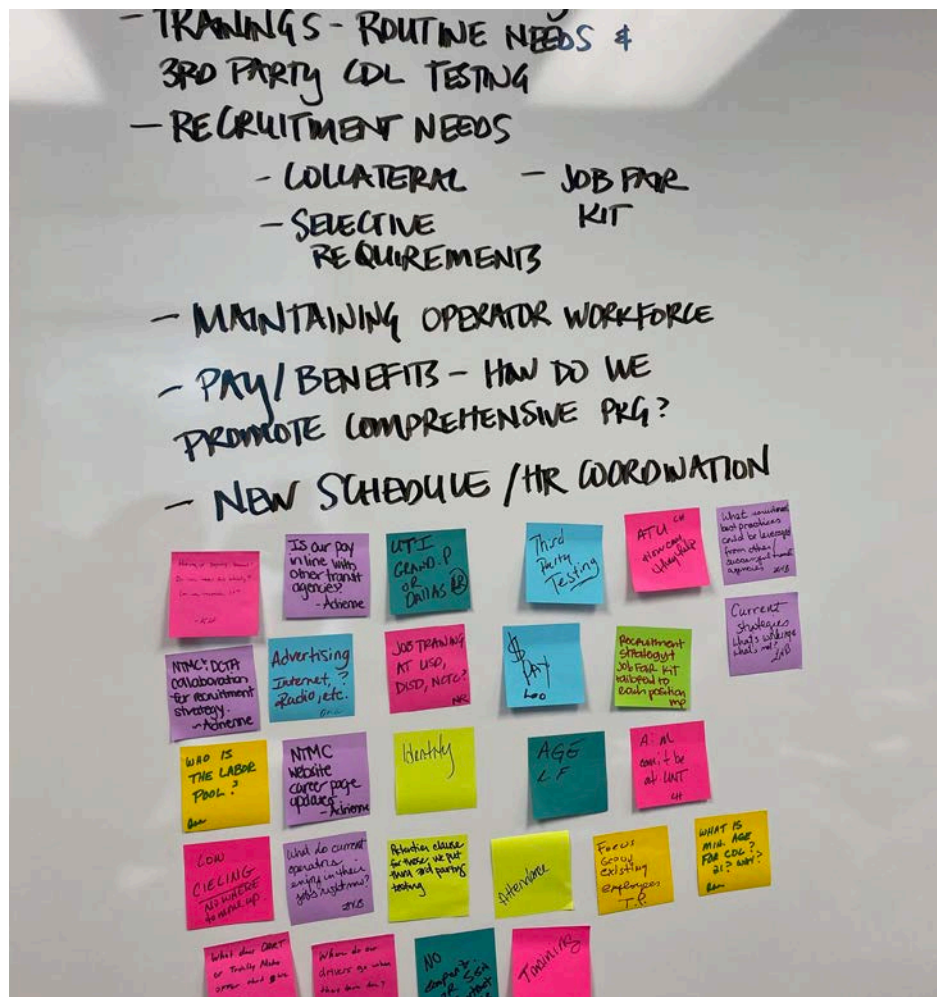 - TRAININGS - ROUTINE NEEDS &
3RD PARTY CDL TESTING
- RECRUITMENT NEEDS
- COLLATERAL - JOB FAIR
KIT
- SELECTIVE
REQUIREMENTS
- MAINTAINING OPERATOR WORKFORCE
- PAY/BENEFITS - HOW DO WE
PROMOTE COMPREHENSIVE PKG?
- NEW SCHEDULE / HR COORDINATION
Is our pay
in line with
other transit
agencies?
- Adrienne
UTI
GRAND.P
OR
DALLAS
Third
Party
Testing
ATU CH
How can
they help
What
best practices
could be leveraged
from other
successful transit
agencies
NTMC & DCTA
collaboration
for recruitment
strategy.
- Adrienne
Advertising
Internet, ?
Radio, etc.
JOB TRAINING
AT
DISD, NCTC?
NR
$
PAY
Recruitment
strategy &
Job FAIR KIT
tailored to
each position
mp
Current
strategies
what's working
what's not?
WHO IS
THE LABOR
POOL?
NTMC
website
career page
updates
- Adrienne
Identify
AGE
LF
can't be
at UNT
LH
LOW
CIELING
NOWHERE
to move up.
What do current
operators
enjoy in their
jobs right now?
Retention clause
for those we put
thru 3rd party
testing
Attendance
Focus
Group
existing
employees
T.P.
WHAT IS
MIN. AGE
FOR CDL?
21? WHY?
What does DART
or Trinity Metro
offer that
Where do our
drivers go when
they leave
NO
Training